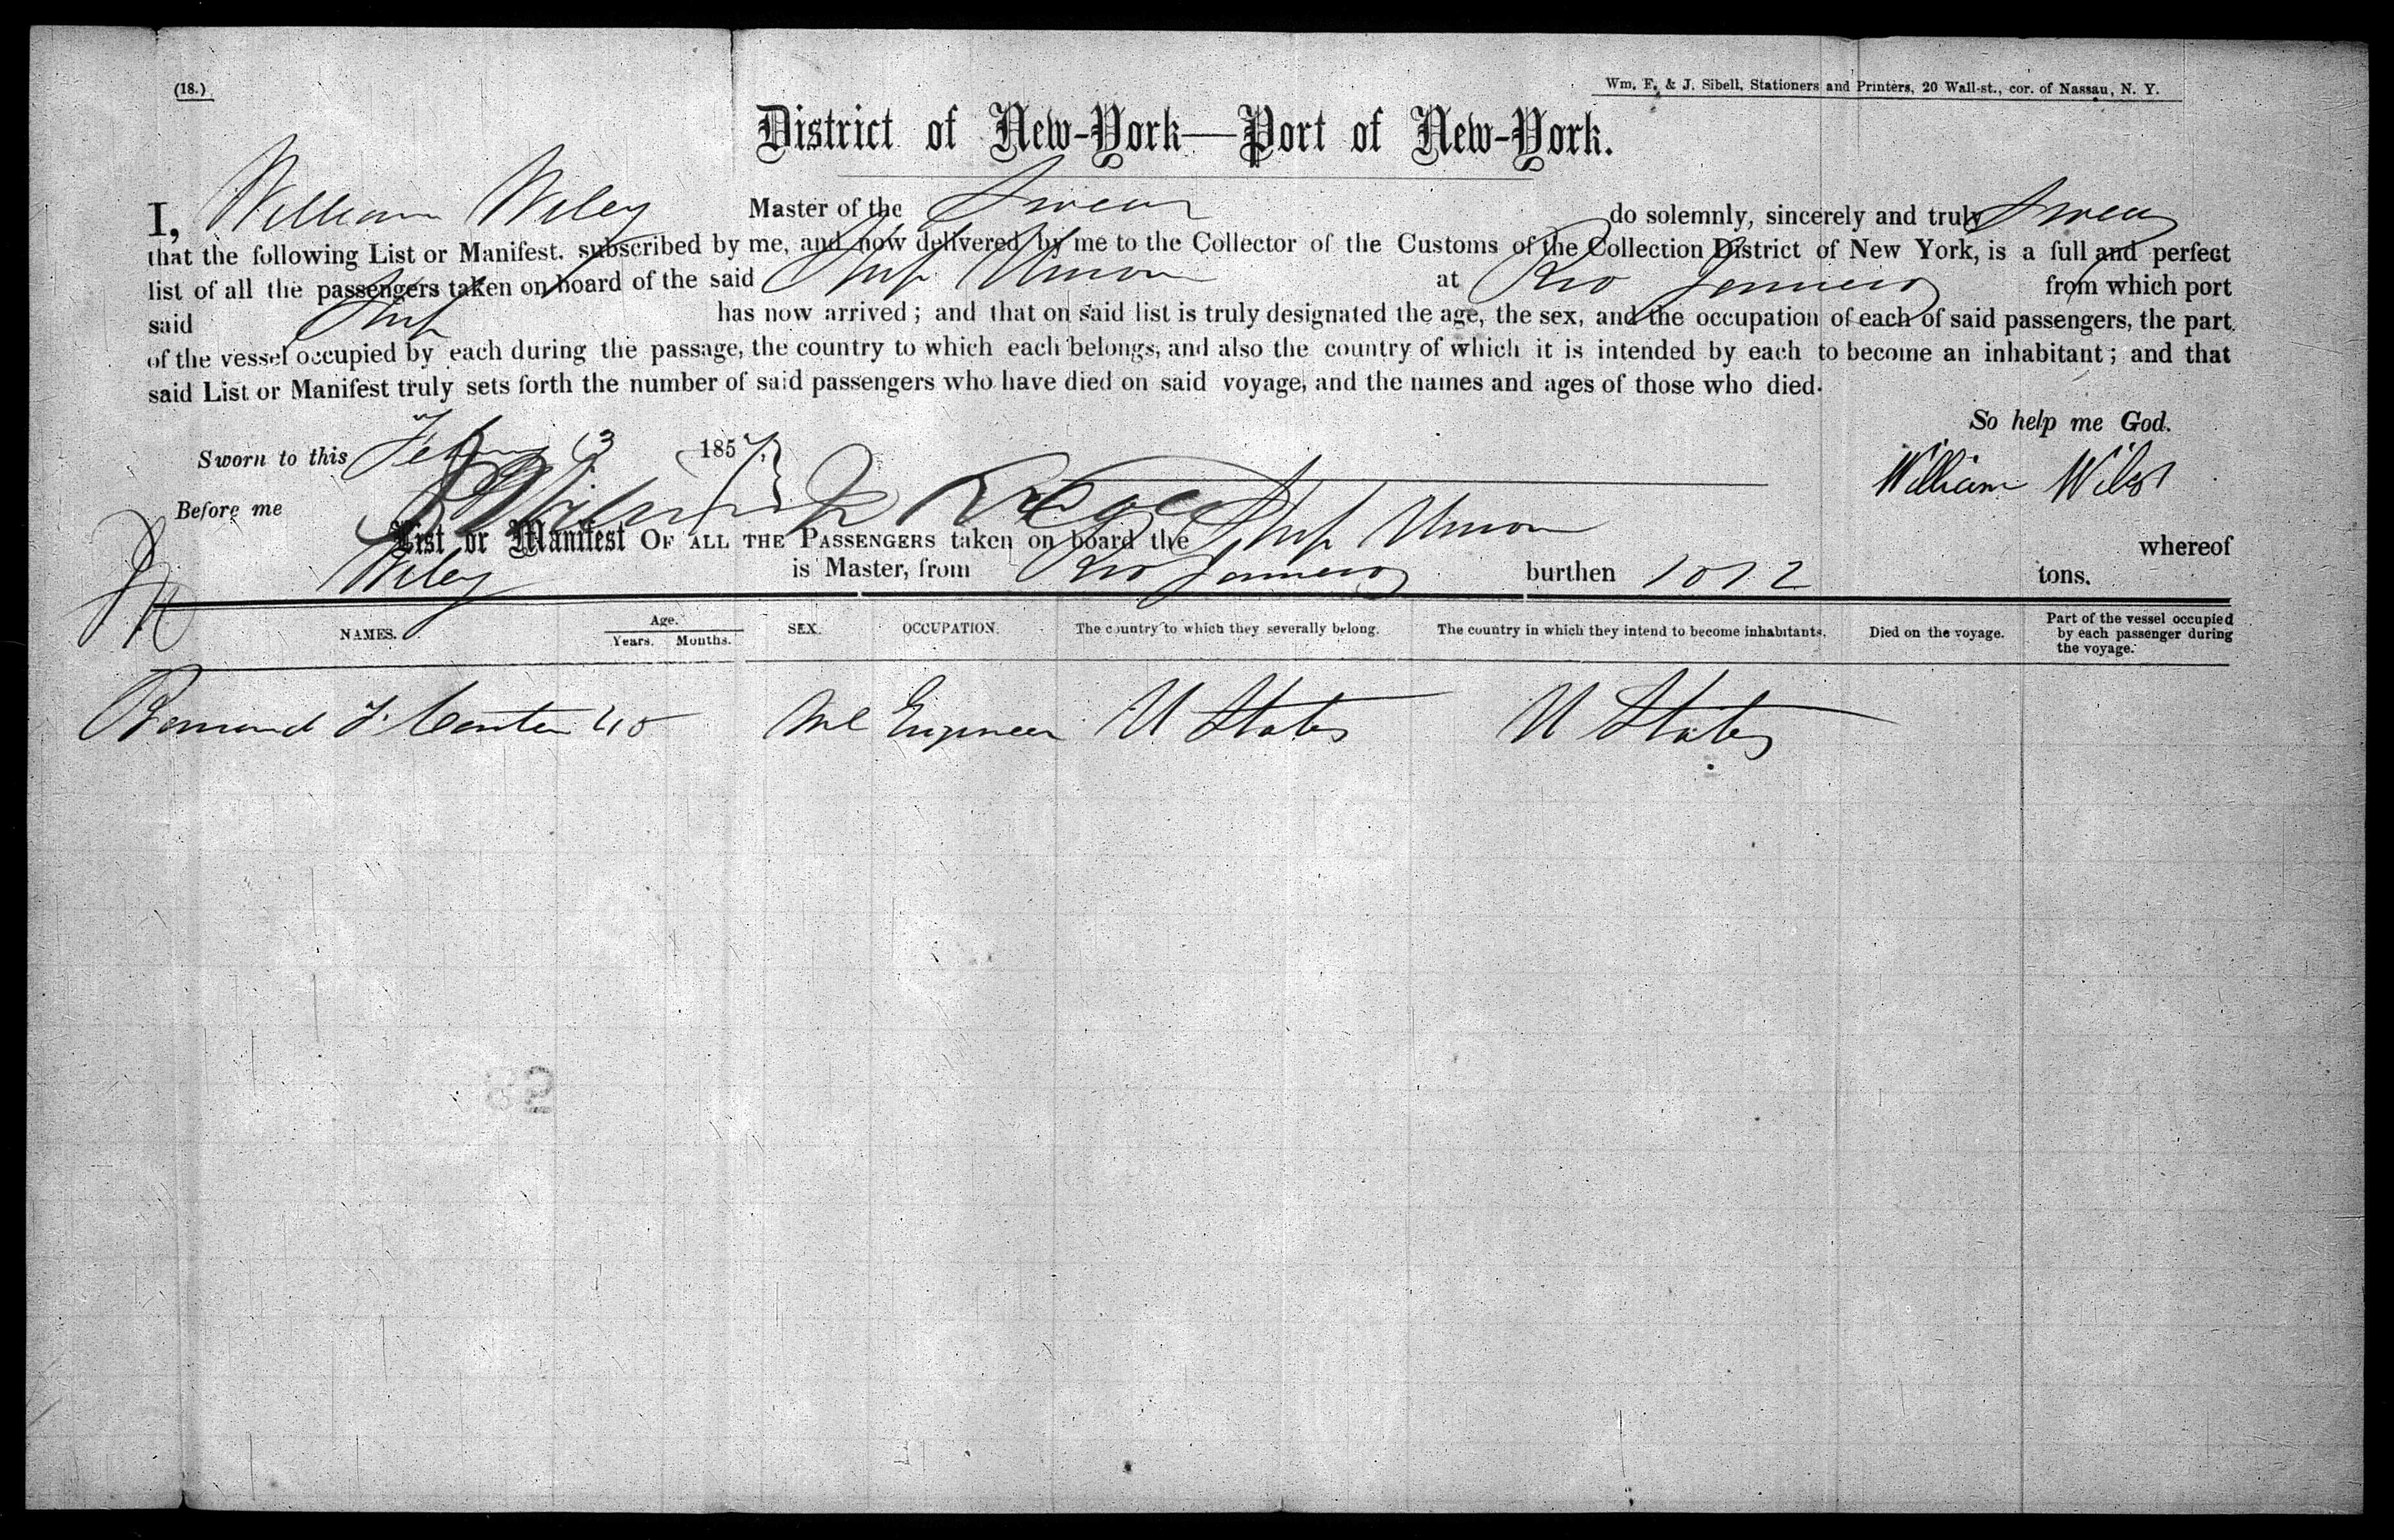 (18.)
Wm. E. & J. Sibell, Stationers and Printers, 20 Wall-st., cor. of Nassau, N. Y.
District of New-York—Port of New-York.
I, William Wiley Master of the Swear do solemnly, sincerely and truly Swear
that the following List or Manifest. subscribed by me, and now delivered by me to the Collector of the Customs of the Collection District of New York, is a full and perfect
list of all the passengers taken on board of the said Ship Union at Rio Janneiro from which port
said Ship has now arrived; and that on said list is truly designated the age, the sex, and the occupation of each of said passengers, the part
of the vessel occupied by each during the passage, the country to which each belongs, and also the country of which it is intended by each to become an inhabitant; and that
said List or Manifest truly sets forth the number of said passengers who have died on said voyage, and the names and ages of those who died.
So help me God.
Sworn to this 13 1857
William Wiley
Before me
List or Manifest OF ALL THE PASSENGERS taken on board the Ship Union whereof
Wiley is Master, from Rio Janneiro burthen 1012 tons.
NAMES. Age. Years. Months. SEX. OCCUPATION. The country to which they severally belong. The country in which they intend to become inhabitants. Died on the voyage. Part of the vessel occupied by each passenger during the voyage.
F. 45 Ml Engineer U States U States